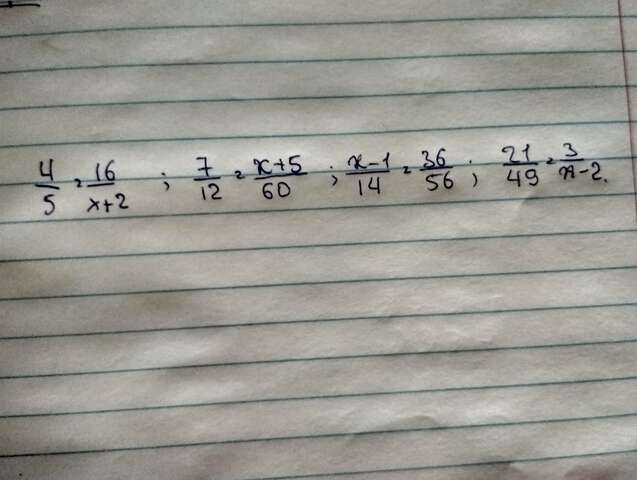 4/5 = 16/x+2 ; 7/12 = x+5/60 ; x-1/14 = 36/56 ; 21/49 = 3/x-2.